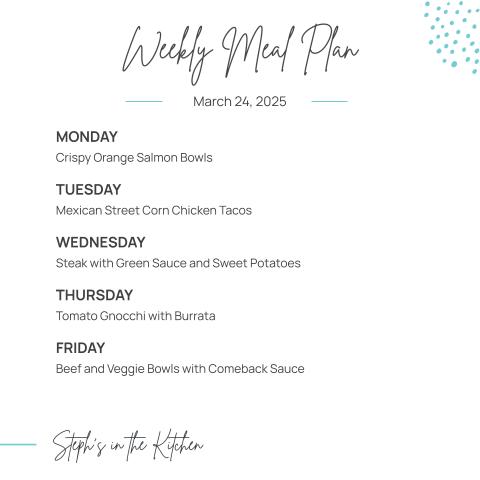 Weekly Meal Plan
March 24, 2025
MONDAY
Crispy Orange Salmon Bowls
TUESDAY
Mexican Street Corn Chicken Tacos
WEDNESDAY
Steak with Green Sauce and Sweet Potatoes
THURSDAY
Tomato Gnocchi with Burrata
FRIDAY
Beef and Veggie Bowls with Comeback Sauce
Steph's in the Kitchen